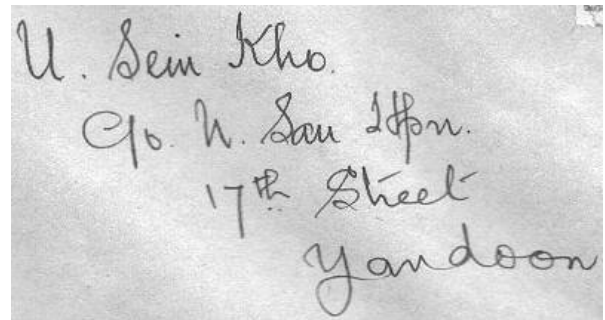 U. Sein Kho.
C/o. U. San
17th Street
Yandoon